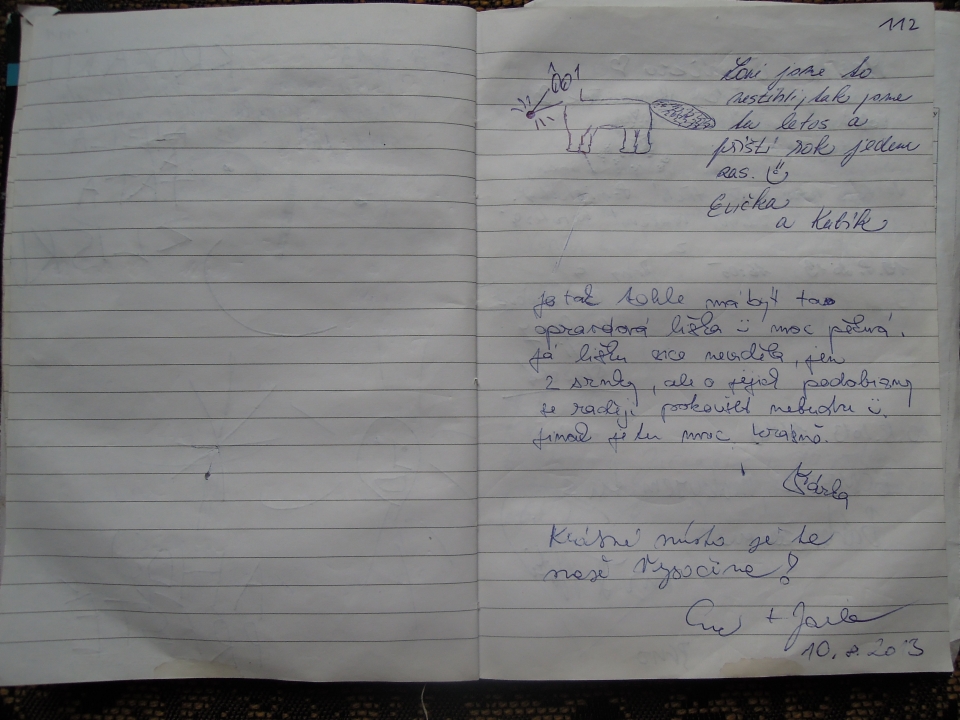 112
Loni jsme to
nestihli, tak jsme
tu letos a
příští rok jedem
zas.
Evička
a Kubík
jo tak tohle má být ta
opravdová liška ü moc pěkná.
Já lišku sice neviděla, jen
2 srnky, ale o jejich podobizny
se raději pokoušet nebudu ü.
jinak je tu moc krásně.
Klárka
Krásné místo je to
naše Vysočina!
+ Jarda
10. 8. 2013